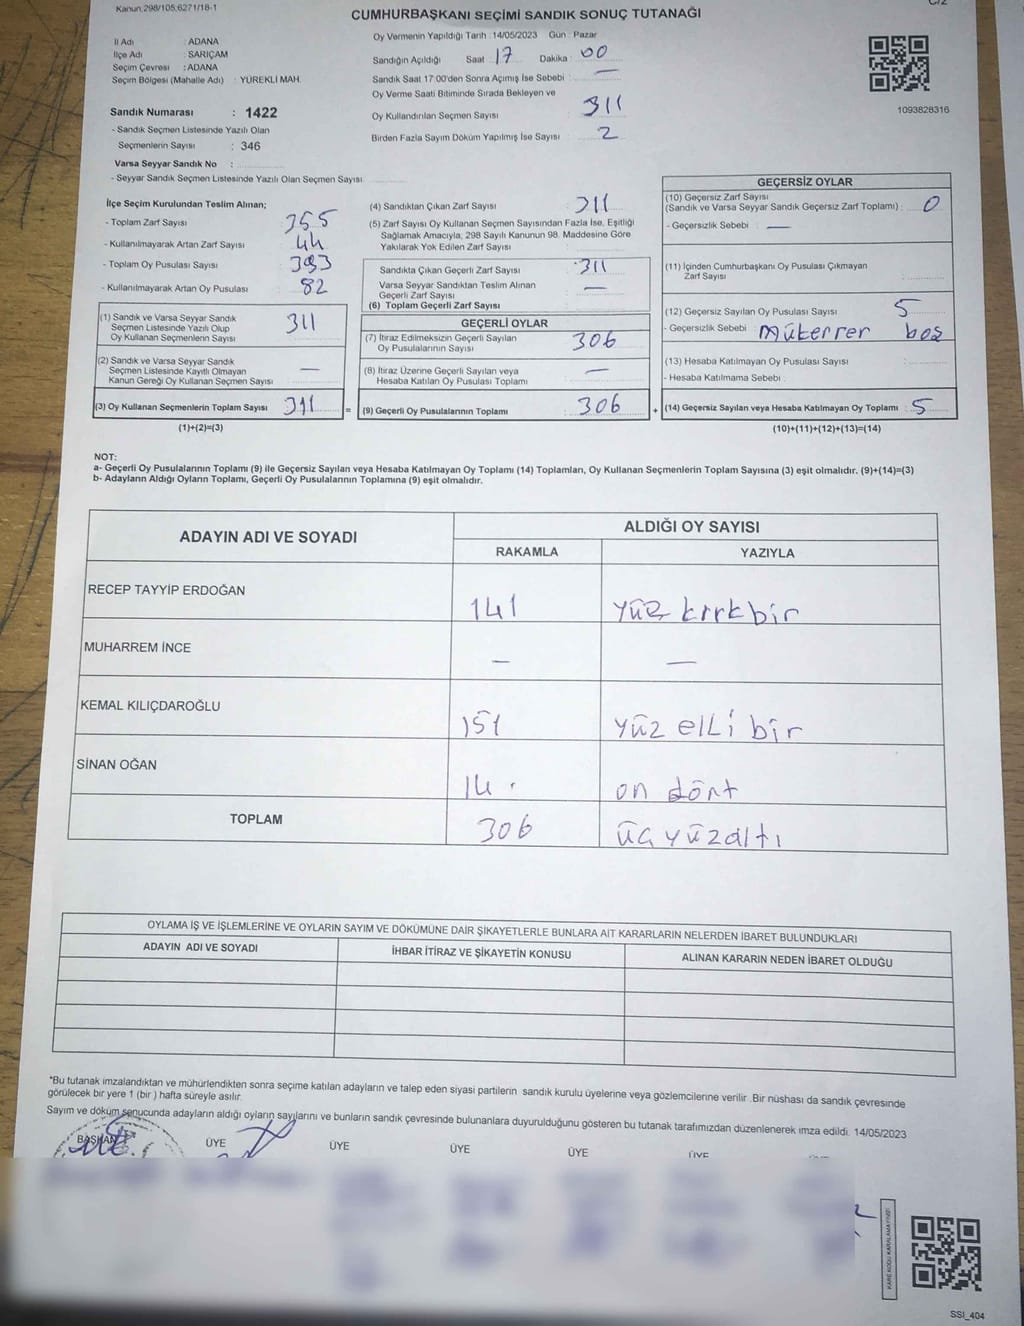 Kanun,298/105,6271/18-1
CUMHURBAŞKANI SEÇİMİ SANDIK SONUÇ TUTANAĞI
İl Adı : ADANA
İlçe Adı : SARIÇAM
Seçim Çevresi : ADANA
Seçim Bölgesi (Mahalle Adı) : YÜREKLİ MAH.
Sandık Numarası : 1422
- Sandık Seçmen Listesinde Yazılı Olan
Seçmenlerin Sayısı : 346
Varsa Seyyar Sandık No :
- Seyyar Sandık Seçmen Listesinde Yazılı Olan Seçmen Sayısı
Oy Vermenin Yapıldığı Tarih : 14/05/2023 Gün : Pazar
Sandığın Açıldığı Saat : 17 Dakika : 00
Sandık Saat 17:00'den Sonra Açımış İse Sebebi : —
Oy Verme Saati Bitiminde Sırada Bekleyen ve
Oy Kullandırılan Seçmen Sayısı : 311
Birden Fazla Sayım Döküm Yapılmış İse Sayısı : 2
1093828316
İlçe Seçim Kurulundan Teslim Alınan;
- Toplam Zarf Sayısı : 355
- Kullanılmayarak Artan Zarf Sayısı : 44
- Toplam Oy Pusulası Sayısı : 393
- Kullanılmayarak Artan Oy Pusulası : 82
(1) Sandık ve Varsa Seyyar Sandık
Seçmen Listesinde Yazılı Olup
Oy Kullanan Seçmenlerin Sayısı : 311
(2) Sandık ve Varsa Seyyar Sandık
Seçmen Listesinde Kayıtlı Olmayan
Kanun Gereği Oy Kullanan Seçmen Sayısı : —
(3) Oy Kullanan Seçmenlerin Toplam Sayısı : 311 =
(1)+(2)=(3)
(4) Sandıktan Çıkan Zarf Sayısı : 311
(5) Zarf Sayısı Oy Kullanan Seçmen Sayısından Fazla İse, Eşitliği
Sağlamak Amacıyla, 298 Sayılı Kanunun 98. Maddesine Göre
Yakılarak Yok Edilen Zarf Sayısı :
Sandıkta Çıkan Geçerli Zarf Sayısı : 311
Varsa Seyyar Sandıktan Teslim Alınan
Geçerli Zarf Sayısı : —
(6) Toplam Geçerli Zarf Sayısı
GEÇERLİ OYLAR
(7) İtiraz Edilmeksizin Geçerli Sayılan
Oy Pusulalarının Sayısı : 306
(8) İtiraz Üzerine Geçerli Sayılan veya
Hesaba Katılan Oy Pusulası Toplamı : —
(9) Geçerli Oy Pusulalarının Toplamı : 306 +
GEÇERSİZ OYLAR
(10) Geçersiz Zarf Sayısı
(Sandık ve Varsa Seyyar Sandık Geçersiz Zarf Toplamı) : 0
- Geçersizlik Sebebi : —
(11) İçinden Cumhurbaşkanı Oy Pusulası Çıkmayan
Zarf Sayısı
(12) Geçersiz Sayılan Oy Pusulası Sayısı : 5
- Geçersizlik Sebebi : mükerrer boş
(13) Hesaba Katılmayan Oy Pusulası Sayısı :
- Hesaba Katılmama Sebebi :
(14) Geçersiz Sayılan veya Hesaba Katılmayan Oy Toplamı : 5
(10)+(11)+(12)+(13)=(14)
NOT:
a- Geçerli Oy Pusulalarının Toplamı (9) ile Geçersiz Sayılan veya Hesaba Katılmayan Oy Toplamı (14) Toplamları, Oy Kullanan Seçmenlerin Toplam Sayısına (3) eşit olmalıdır. (9)+(14)=(3)
b- Adayların Aldığı Oyların Toplamı, Geçerli Oy Pusulalarının Toplamına (9) eşit olmalıdır.
ADAYIN ADI VE SOYADI
ALDIĞI OY SAYISI
RAKAMLA YAZIYLA
RECEP TAYYİP ERDOĞAN 141 yüz kırk bir
MUHARREM İNCE — —
KEMAL KILIÇDAROĞLU 151 yüz elli bir
SİNAN OĞAN 14 on dört
TOPLAM 306 üç yüz altı
OYLAMA İŞ VE İŞLEMLERİNE VE OYLARIN SAYIM VE DÖKÜMÜNE DAİR ŞİKAYETLERLE BUNLARA AİT KARARLARIN NELERDEN İBARET BULUNDUKLARI
ADAYIN ADI VE SOYADI İHBAR İTİRAZ VE ŞİKAYETİN KONUSU ALINAN KARARIN NEDEN İBARET OLDUĞU
*Bu tutanak imzalandıktan ve mühürlendikten sonra seçime katılan adayların ve talep eden siyasi partilerin sandık kurulu üyelerine veya gözlemcilerine verilir .Bir nüshası da sandık çevresinde
görülecek bir yere 1 (bir ) hafta süreyle asılır.
Sayım ve döküm sonucunda adayların aldığı oyların sayılarını ve bunların sandık çevresinde bulunanlara duyurulduğunu gösteren bu tutanak tarafımızdan düzenlenerek imza edildi. 14/05/2023
BAŞKAN ÜYE ÜYE ÜYE ÜYE ÜYE
KARE KODU KARALAMAYINIZ!
SSI_404